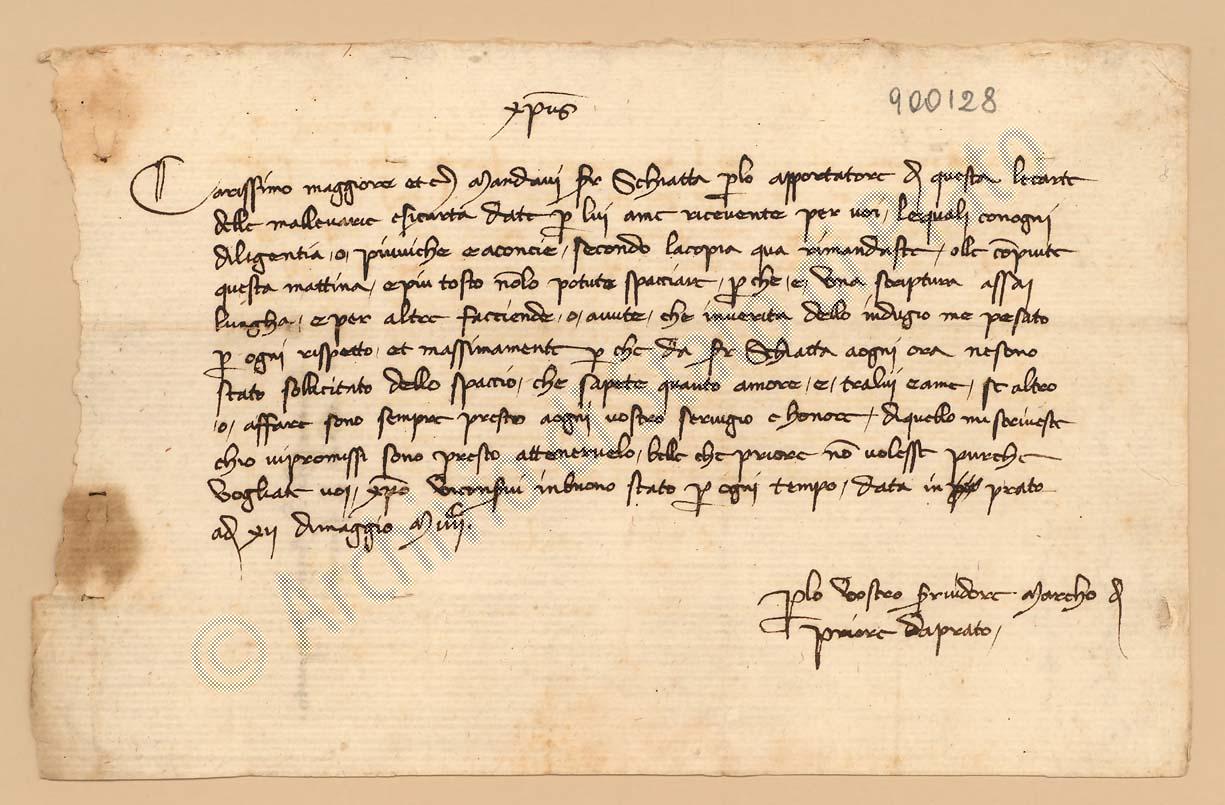 xp̄us
900128
Carissimo maggiore et c̄ Mandavi Ser Schiatta p lo apportatore di questa le carte
delle mallevarie e sicurta date p lui a me ricevente per voi, le quali con ogni
diligentia, o, piuviche e aconcie, secondo la copia qua rimandaste, olle cōpiute
questa mattina, e piu tosto nōlo potute spacciare, p che, e, una scriptura assai
lungha, e per altre facciende, o, avute, che in verita dello indugio me pesato
p ogni rispetto, et massimamente p che da Ser Schiatta a ogni ora ne sono
stato sollicitato dello spaccio, che sapete quanto amore, e, tra lui e a me, se altro
o, affare sono sempre presto a ogni vostro servigio e honore, di quello mi scriveste
chio vi promissi sono presto attenervelo, belle che priore nō volesse purche
vogliate voi, xp̄o vi conservi in buono stato p ogni tempo, data in prato
a di xii di maggio
P lo vostro servidore Marcho di
priore da prato,
© Archivio di Stato